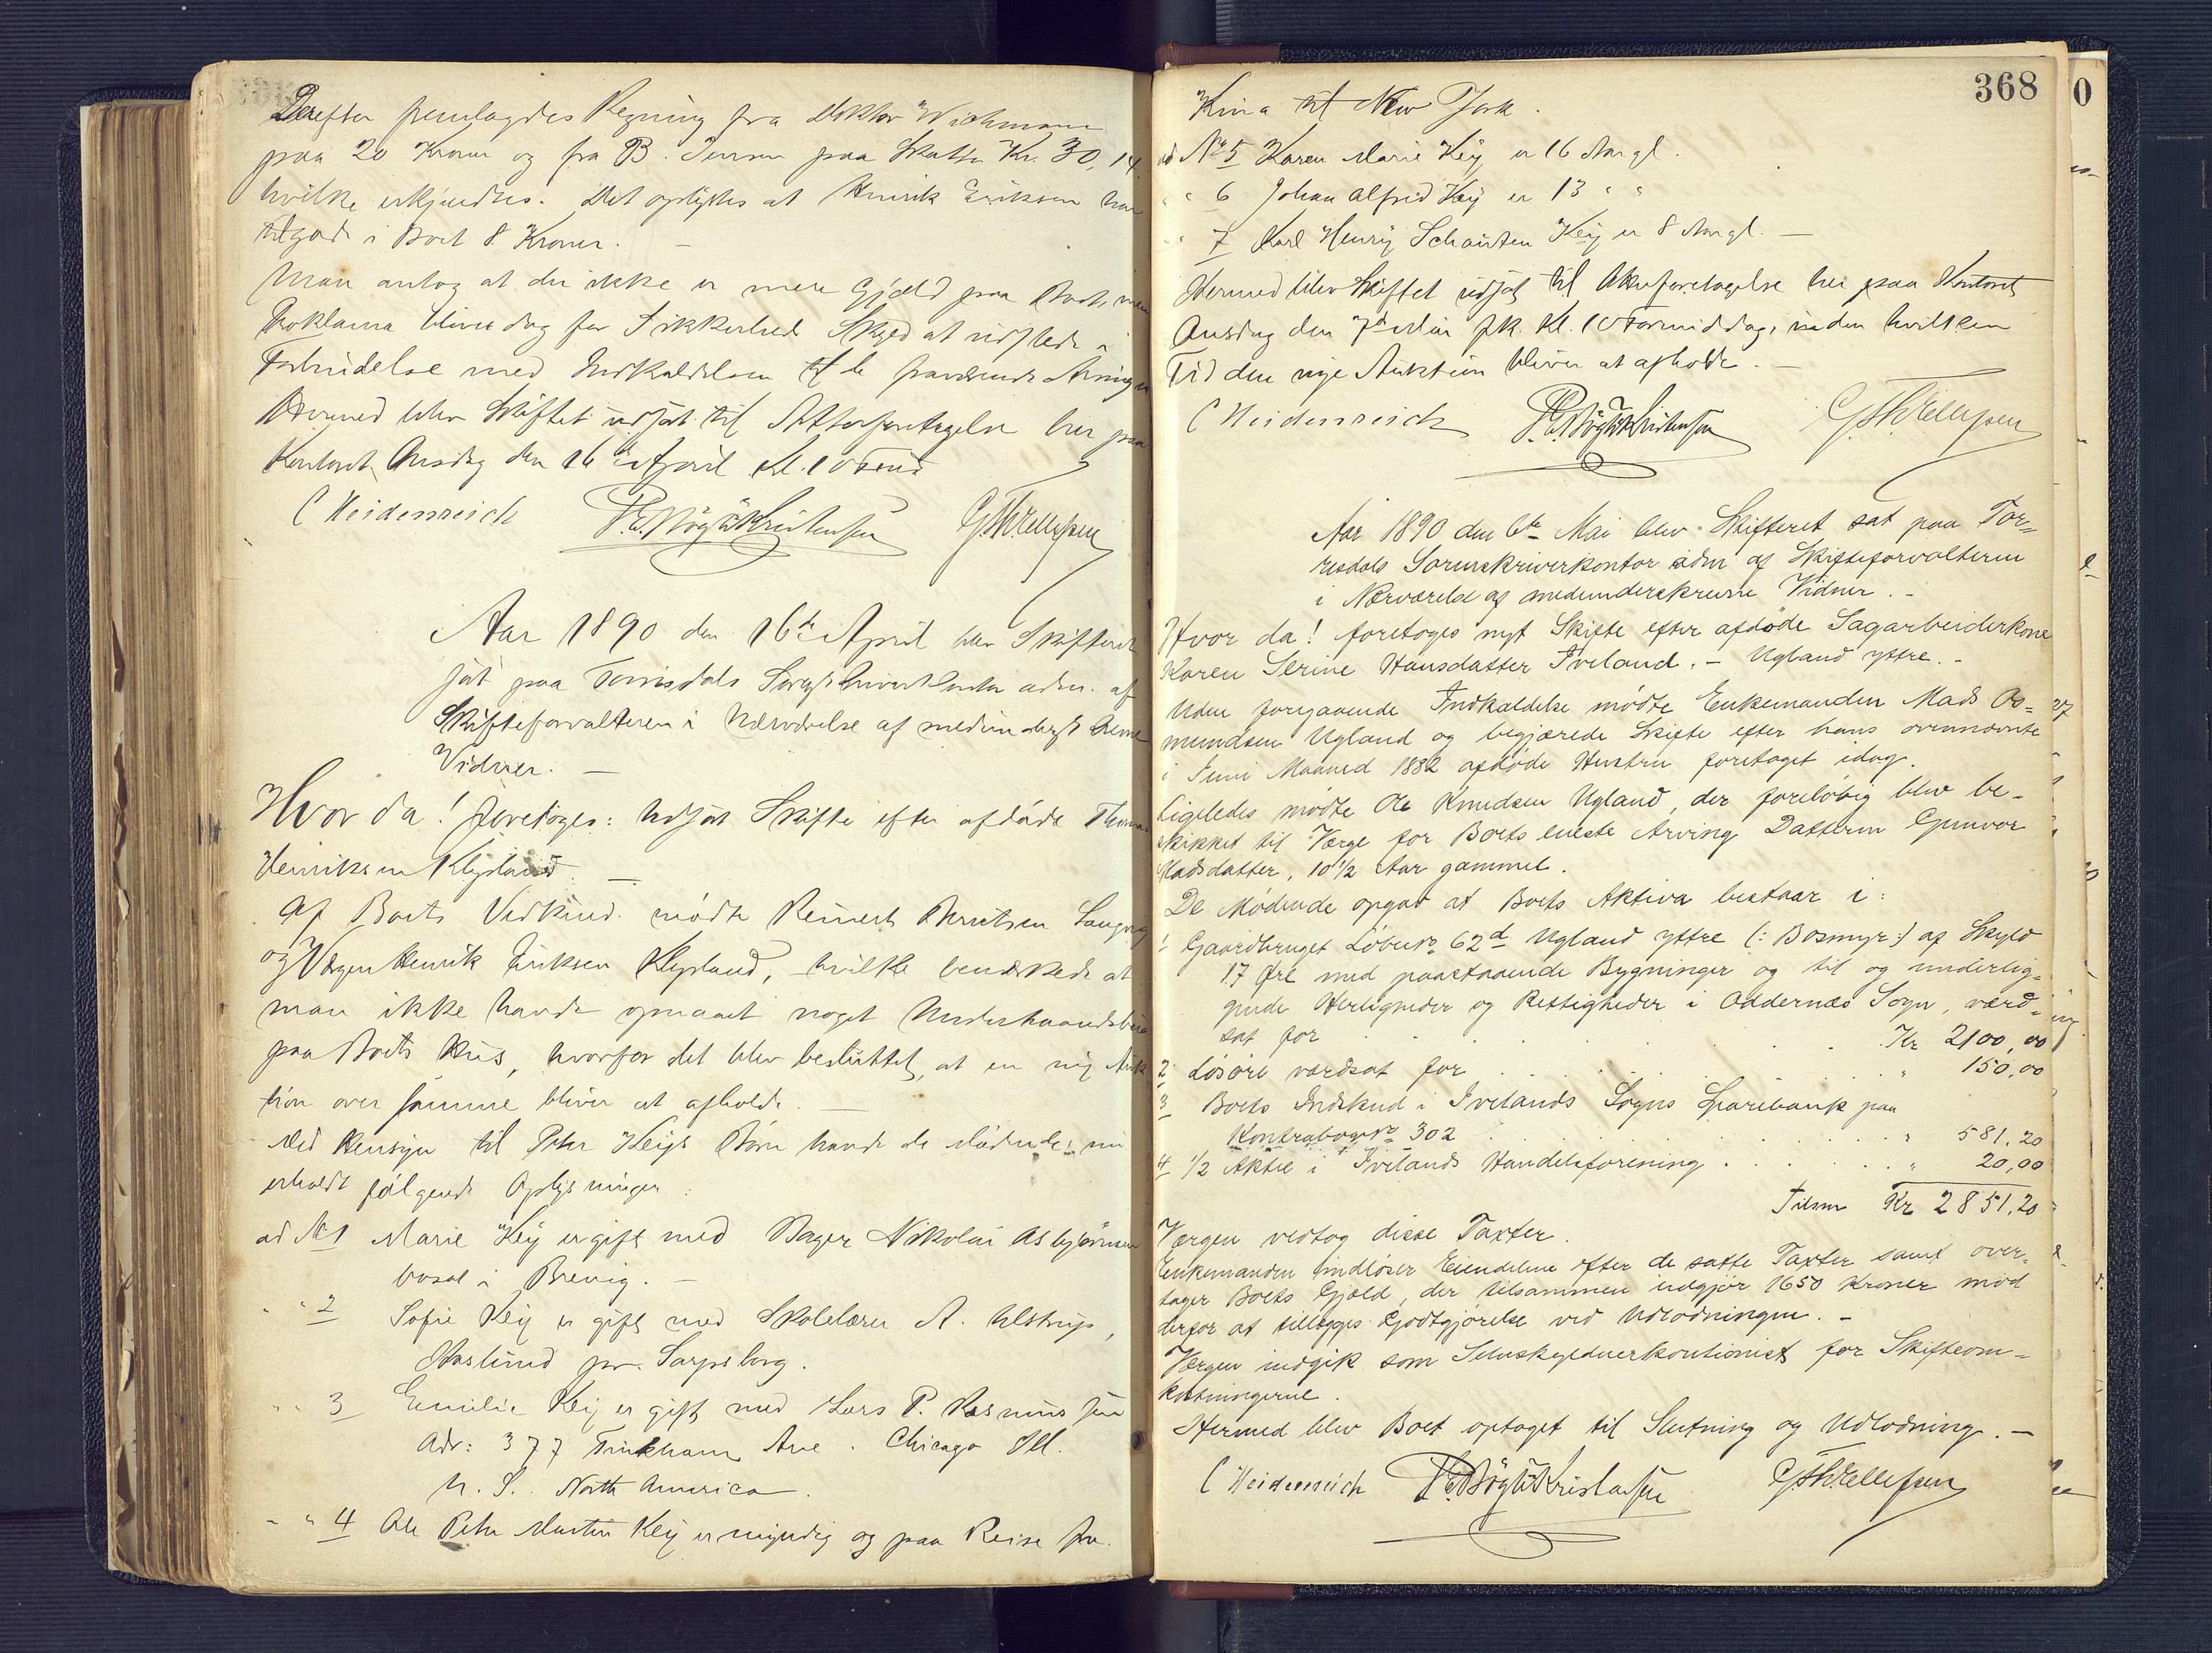 Derefter fremlagdes Regning fra Doktor Wichmann
paa 20 Kroner og fra B. Jensen paa Skatter Kr. 30,14
hvilke erkjendtes. Det oplystes at Henrik Eriksen har
tilgode i Boet 8 Kroner. —
Man antog at der ikke er mere Gjæld paa Boet, men
Proklama bliver dog for Sikkerheds Skyld at udstede i
Forbindelse med Indkaldelsen til de fraværende Arvinger
Hermed blev Skiftet udsat til Atterforetagelse her paa
Kontoret Onsdag den 16de April Kl. 10 Form
C Heidenreich
G Th Ellefsen
Aar 1890 den 16de April blev Skifteret
sat paa Torrisdals Sorenskriverkontor adm. af
Skifteforvalteren i Nærværelse af medunderskrevne
Vidner. —
Hvor da! foretoges: Udsat Skifte efter afdøde Thomas
Henriksen Klepland. —
Af Boets Vedkmd. mødte Reinert Berntsen Langeng
og Værgen Henrik Eriksen Klepland, hvilke bemærkede at
man ikke havde opnaaet noget Underhaandsbud
paa Boets Hus, hvorfor det blev besluttet, at en ny Auk
tion over samme bliver at afholde. —
Med Hensyn til Peter Keijs Børn havde de Mødende nu
erholdt følgende Oplysninger:
ad No 1 Marie Keij er gift med Bager Nikolai Asbjørnsen
bosat i Brevig. —
" " 2 Sofie Keij er gift med Skolelærer A. Ulstrup,
Haslund pr. Sarpsborg.
" " 3 Emilie Keij er gift med Lars P. Rasmussen
Adr: 377 Tinkham Ave. Chicago Ill.
U. S. North America.
" " 4 Ole Peter Martin Keij er myndig og paa Reise fra
368
Kina til New York.
ad No 5 Karen Marie Keij er 16 Aar gl.
" " 6 Johan Alfred Keij er 13 " "
" " 7 Karl Henrij Schouten Keij er 8 Aar gl. —
Hermed blev Skiftet udsat til Atterforetagelse her paa Kontoret
Onsdag den 7de Mai fk. Kl. 10 Formiddag, inden hvilken
Tid den nye Auktion bliver at afholde. —
C Heidenreich
G Th Ellefsen
Aar 1890 den 6te Mai blev Skifteret sat paa Tor-
risdals Sorenskriverkontor adm af Skifteforvalteren
i Nærværelse af medunderskrevne Vidner. -
Hvor da! foretoges nyt Skifte efter afdøde Sagarbeiderkone
Karen Serine Hansdatter Iveland. - Ugland yttre. -
Uden foregaaende Indkaldelse mødte Enkemanden Mads Os=
mundsen Ugland og begjærede Skifte efter hans ovennævnte
i Juni Maaned 1882 afdøde Hustru foretaget idag.
Ligeledes mødte Ole Knudsen Ugland, der foreløbig blev be-
skikket til Værge for Boets eneste Arving Datteren Gunvor
Madsdatter, 10 1/2 Aar gammel.
De Mødende opgav at Boets Aktiva bestaar i:
1 Gaardbruget Løbeno 62d Ugland yttre (: Bosmyr:) af Skyld
17 Øre med paastaaende Bygninger og til og underlig-
gende Herligheder og Rettigheder i Oddernæs Sogn, værd-
sat for . . . . Kr 2100,00
2 Løsøre værdsat for . . . . " 150,00
3 Boets Indskud i Ivelands Sogns Sparebank paa
Kontrabogno 302 . . . . " 581,20
4 1/2 Aktie i Ivelands Handelsforening . . . . " 20,00
Tilsm Kr 2851,20
Værgen vedtog disse Taxter.
Enkemanden indløser Eiendelene efter de satte Taxter samt over-
tager Boets Gjæld, der tilsammen udgjør 1650 Kroner mod
derfor at tillægges Godtgjørelse ved Udlodningen. -
Værgen indgik som Selvskyldnerkautionist for Skifteom-
kostningerne.
Hermed blev Boet optaget til Slutning og Udlodning. —
C Heidenreich
G Th Ellefsen